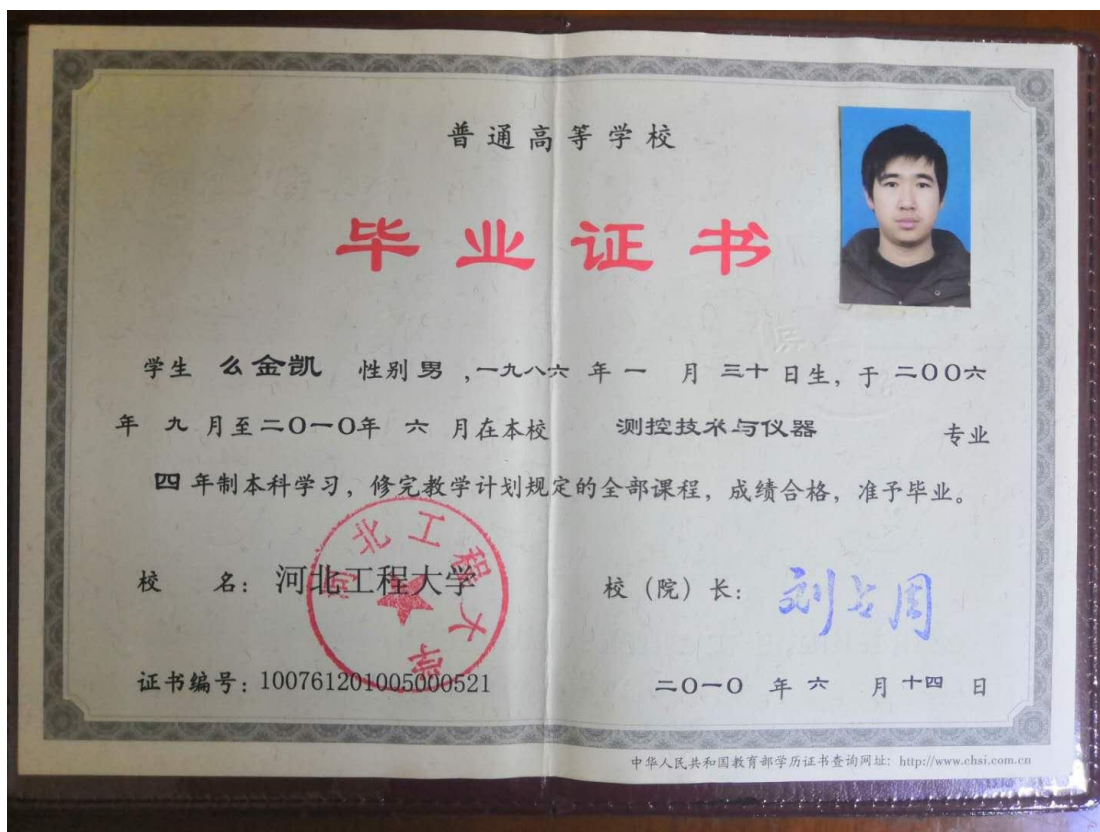 普通高等学校
毕业证书
学生 么金凯 性别 男 ,一九八六 年 一 月 三十 日生，于 二OO六
年 九 月至二O一O年 六 月在本校 测控技术与仪器 专业
四 年制本科学习，修完教学计划规定的全部课程，成绩合格，准予毕业。
校 名：河北工程大学 校（院）长：刘占周
河北工程大学
证书编号：100761201005000521 二O一O 年 六 月 十四 日
中华人民共和国教育部学历证书查询网址：http://www.chsi.com.cn